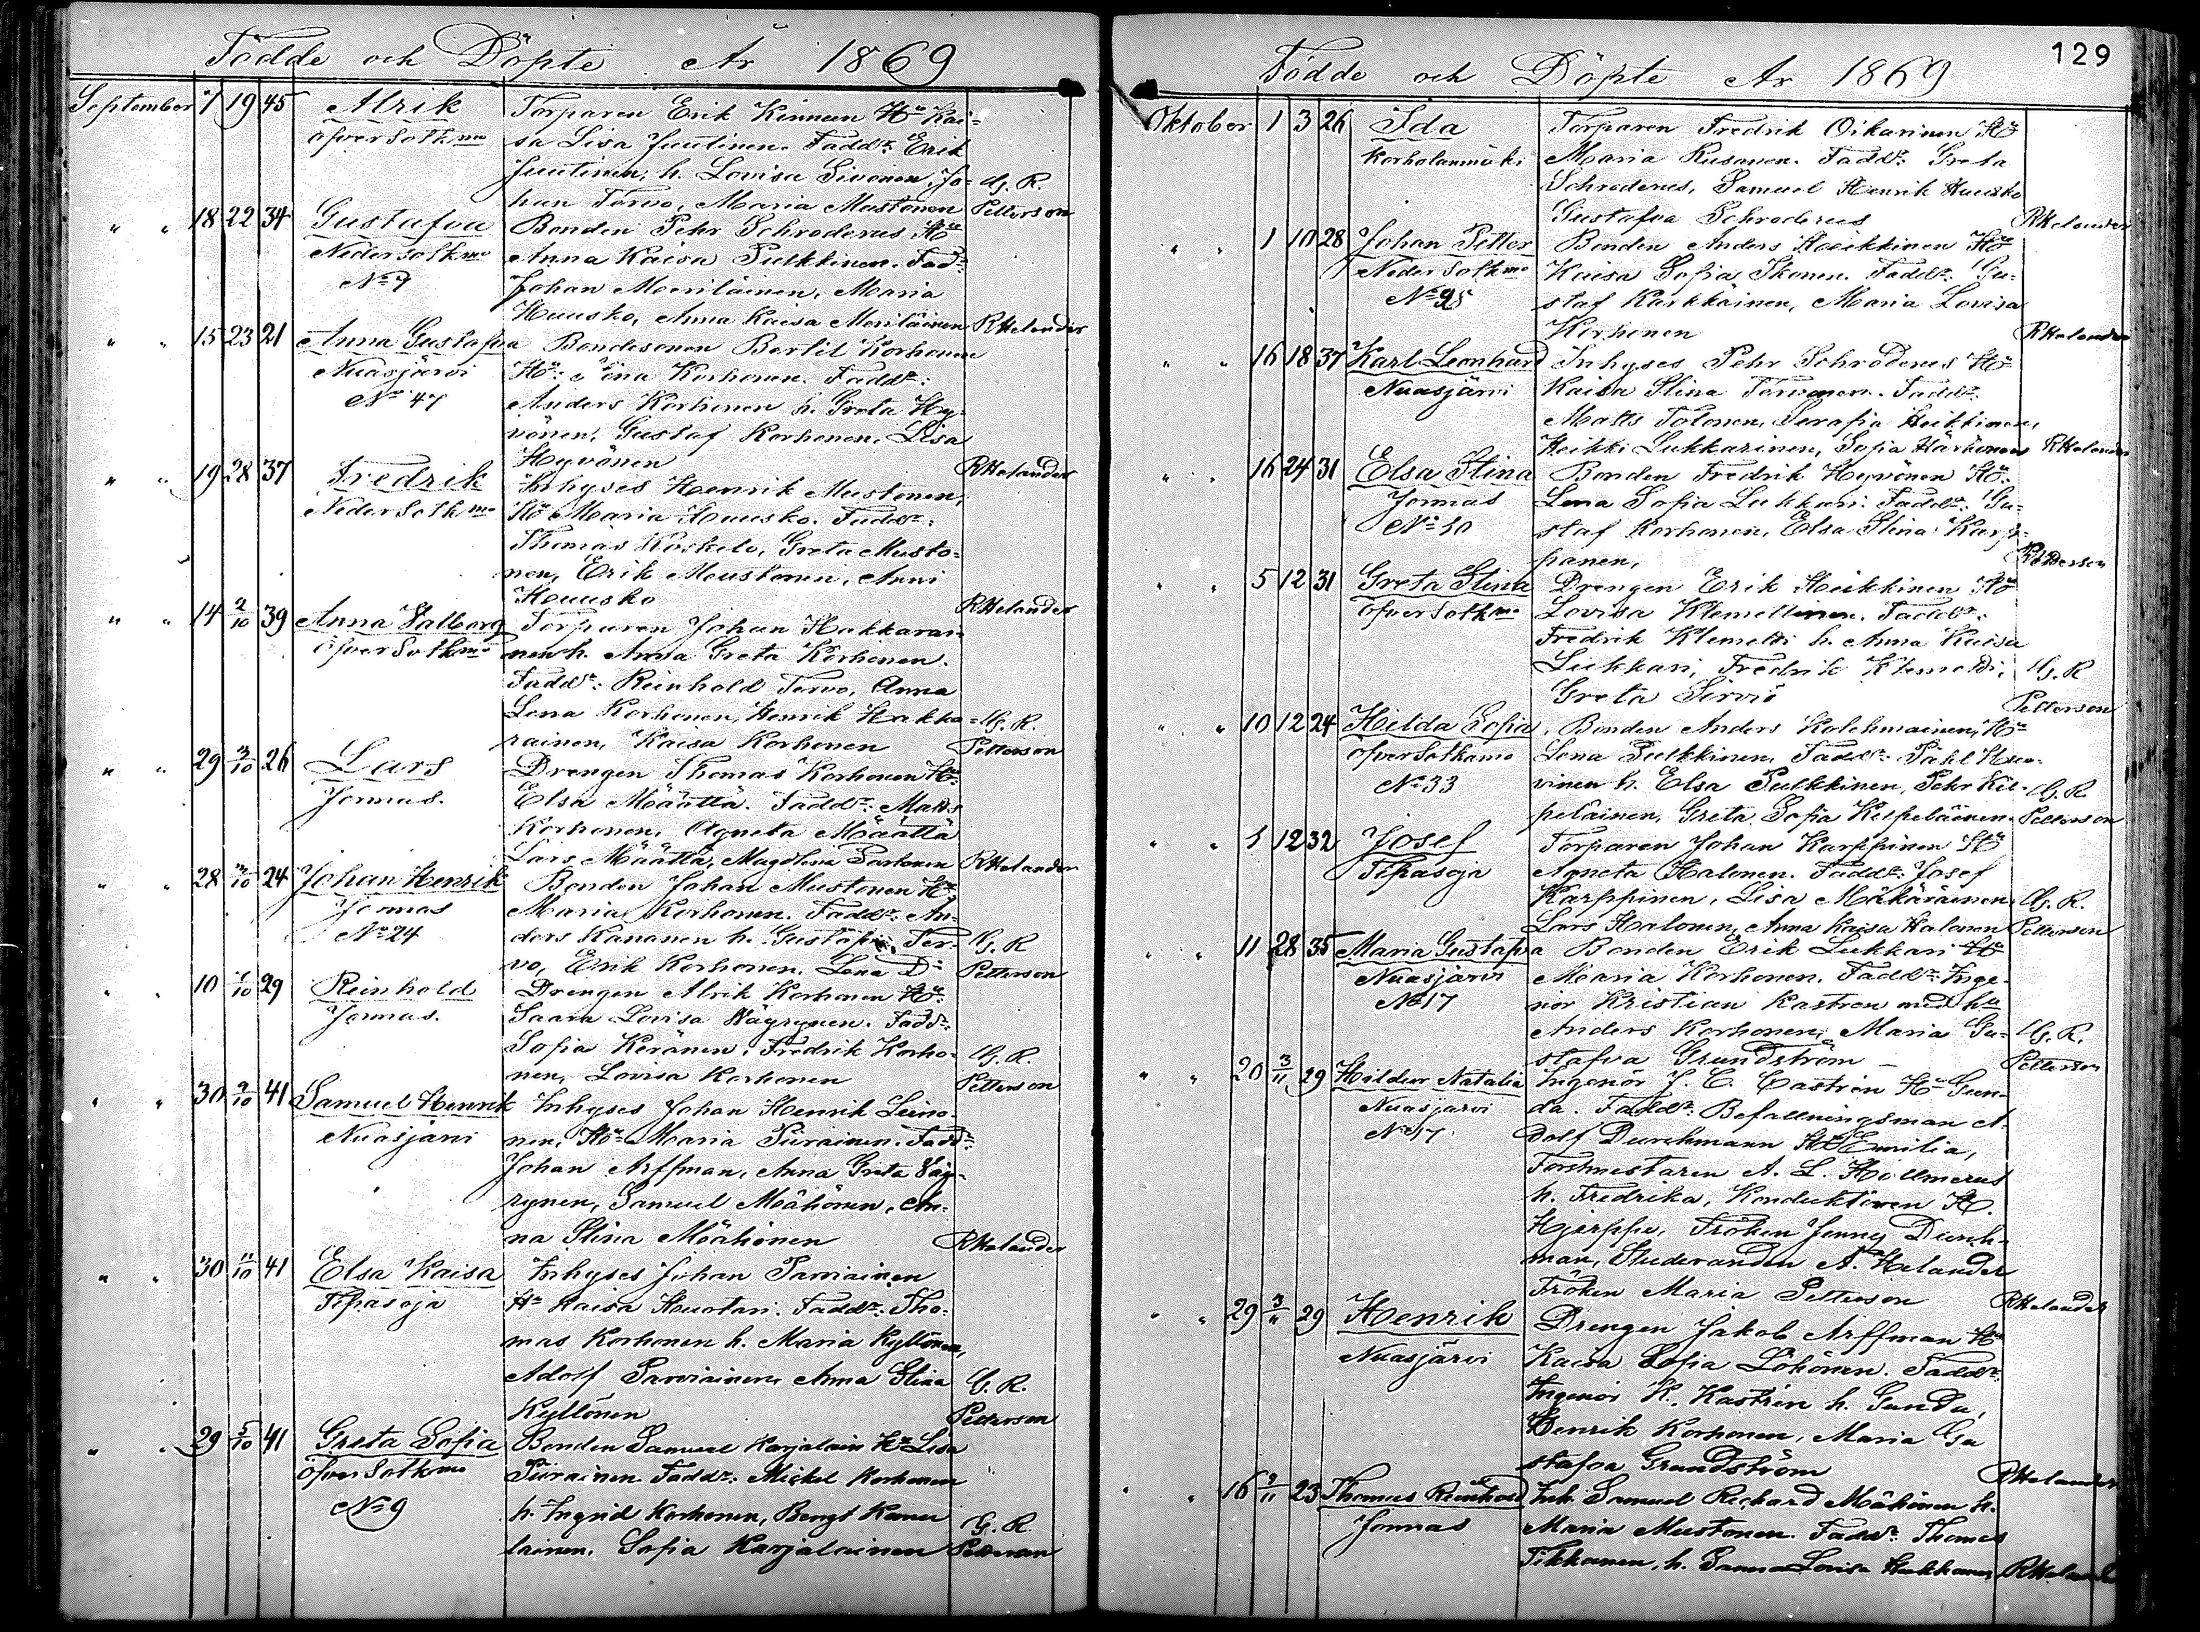 Födde och Döpte År 1869
September 7 19 45 Alrik
Öfver Sotkmo
Torparen Erik Kinnunen Hu Kai-
sa Lisa Juutinen. Faddr: Erik
Juutinen, h. Lovisa Sivonen, Jo- G. R.
han Tervo, Maria Mustonen Petterson
" " 18 22 34 Gustafva
Neder Sotkmo
No 9
Bonden Pehr Schroderus Hu
Anna Kaisa Pulkkinen. Fadr
Johan Moeriläinen, Maria
Huusko, Anna Kaisa Meriläinen RHelander
" " 15 23 21 Anna Gustafva
Nuasjärvi
No 47
Bondesonen Bertil Korhonen
Hu: Stina Korhonen. Faddr:
Anders Korhonen h. Greta Hy-
vönen, Gustaf Korhonen, Lisa
Hyvönen RHelander
" " 19 28 37 Fredrik
Neder Sotkmo
Inhyses Henrik Mustonen,
Hu Maria Huusko. Faddr:
Thomas Koskelo, Greta Musto-
nen, Erik Moustonen, Anni
Huusko RHelander
" " 14 2/10 39 Anna Valborg
Öfver Sotkmo
Torparen Johan Hakkarai-
nen h. Anna Greta Korhonen.
Faddr: Reinhold Tervo, Anna
Lena Korhonen, Henrik Hakka- G. R.
rainen, Kaisa Korhonen Petterson
" " 29 3/10 26 Lars
Jormas.
Drengen Thomas Korhonen Hu
Elsa Määttä. Faddr: Matts
Korhonen, Agneta Määttä
Lars Määttä, Magdlena Partanen RHelander
" " 28 /10 24 Johan Henrik
Jormas
No 24
Bonden Johan Mustonen Hu
Maria Korhonen. Faddr: An-
ders Kananen h. Gustafva Ter- G. R
vo, Erik Korhonen. Lena Do Petterson
" " 10 /10 29 Reinhold
Jormas.
Drengen Alrik Korhonen Hu
Saara Lovisa Väyrynen. Faddr.
Sofia Keränen, Fredrik Korho- G. R.
nen, Lovisa Korhonen Petterson
" " 30 /10 41 Samuel Henrik
Nuasjärvi
Inhyses Johan Henrik Leino-
nen, Hu Maria Piirainen. Faddr
Johan Arffman, Anna Greta Väy-
rynen, Samuel Mähönen, An-
na Stina Mähönen RHelander
" " 30 /10 41 Elsa Kaisa
Tipasoja
Inhyses Johan Parviainen
Hu Kaisa Huotari. Faddr: Tho-
mas Korhonen h. Maria Kyllönen,
Adolf Parviainen Anna Stina G. R.
Kyllönen Petterson
" " 29 5/10 41 Greta Sofia
Öfver Sotkmo
No 9
Bonden Samuel Karjalain Hu Lisa
Piirainen. Faddr: Mickel Korhonen
h. Ingrid Korhonen, Bengt G. R.
lainen, Sofia Karjalainen Petterson
129
Födde och Döpte År 1869
Oktober 1 3 26 Ida
Korholanmäki
Torparen Fredrik Oikarinen Hu
Maria Rusanen. Faddr: Greta
Schroderus, Samuel Henrik Huusko
Gustafva Schroderus RHelander
" " 1 10 28 Johan Petter
Neder Sotkmo
No 25
Bonden Anders Heikkinen Hu
Kaisa Sofia Ikonen. Faddr: Gu-
staf Karkkainen, Maria Lovisa
Korhonen RHelander
" " 16 18 37 Karl Leonhard
Nuasjärvi
Inhyses Pehr Schroderus Hu
Kaisa Stina Törmönen. Faddr.
Matts Tolonen, Serafia Heikkinen,
Heikki Lukkarinen, Sofia Härkönen RHelander
" " 16 24 31 Elsa Stina
Jormas
No 10
Bonden Fredrik Hyvönen Hu.
Lena Sofia Lukkari. Faddr: Gu-
staf Korhonen, Elsa Stina Karp-
panen, Petterson
" " 5 12 31 Greta Stina
Öfver Sotkmo
Drengen Erik Heikkinen Hu
Lovisa Klemettinen. Faddr:
Fredrik Klemetti h. Anna Kaisa
Lukkari, Fredrik Klemetti, G. R
Greta Sirviö Petterson
" " 10 12 24 Hilda Sofia
Öfver Sotkamo
No 33
Bonden Anders Kolehmainen, Hu
Lena Pulkkinen. Faddr: Påhl
vinen h. Elsa Pulkkinen, Pehr Kil- G. R.
peläinen, Greta Sofia Kilpeläinen Petterson
" " 1 12 32 Josef
Tipasoja
Torparen Johan Karppinen Hu
Agneta Halonen. Faddr: Josef
Karppinen, Lisa Mäkäräinen G. R.
Lars Halonen, Anna Kaisa Halonen Petterson
" " 11 28 35 Maria Gustafva
Nuasjärvi
No 17
Bonden Erik Lukkari Hu
Maria Korhonen. Faddr: Inge-
niör Kristian Kastren med hu
Anders Korhonen, Maria Gu- G. R.
stafva Grundström Petterson
" " 20 3/11 29 Hildur Natalia
Nuasjärvi
No 17
Ingeniör J. C. Castrén Hu Gun-
da. Faddr: Befallningsman A-
dolf Durchmann Hu Emilia,
Forstmestaren A. L. Hollmerus
h. Fredrika, Konduktören H.
Hjerppe, Fröken Jenny Durch-
man, Studeranden A. Helander
Fröken Maria Petterson RHelander
" " 29 3/11 29 Henrik
Nuasjärvi
Drengen Jakob Arffman Hu
Kaisa Sofia Löhönen. Faddr.
Ingeniör K. Kastrén h. Gunda,
Henrik Korhonen, Maria Gu
stafva Grundström RHelander
" " 16 /11 23 Thomas Reinhold
Jormas
Inh. Samuel Richard Mähönen h.
Maria Mustonen. Faddr: Thomas
Tikkanen, h. Sanna Lovisa RHeland